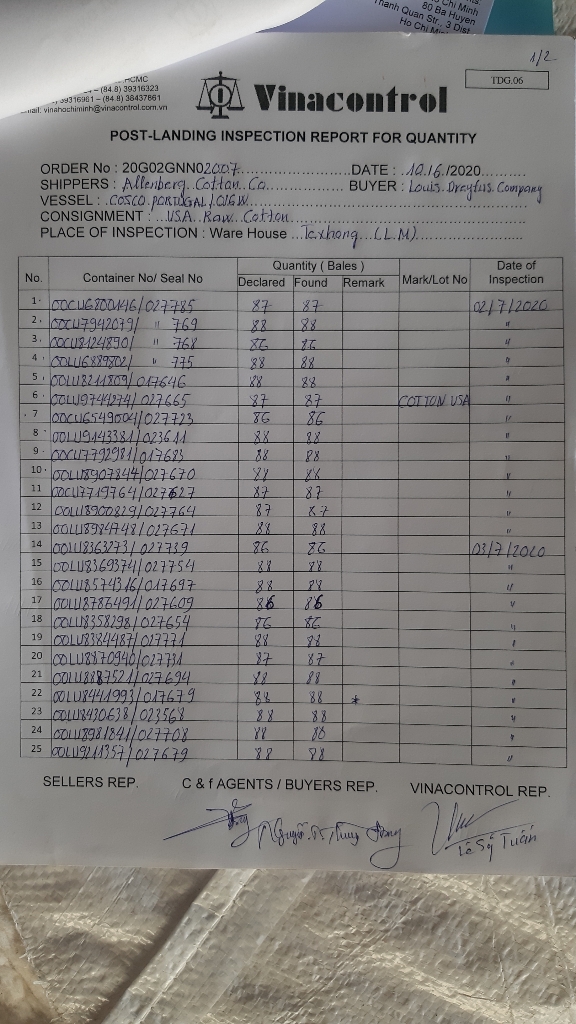 Chi Minh
80 Ba Huyen
Thanh Quan Str., 3 Dist
Ho Chi
1/2
TDG.06
HCMC
(84.8) 39316323
39316961 – (84.8) 38437861
mail: vinahochiminh@vinacontrol.com.vn
Vinacontrol
POST-LANDING INSPECTION REPORT FOR QUANTITY
ORDER No : 20G02GNN02007 DATE : 10.16./2020
SHIPPERS : Allenberg Cotton Co BUYER : Louis Dreyfus Company
VESSEL : COSCO PORTUGAL/016W
CONSIGNMENT : USA Raw Cotton
PLACE OF INSPECTION : Ware House Texhong (L.M)
No. Container No/ Seal No Quantity ( Bales ) Mark/Lot No Date of Inspection
Declared Found Remark
1 OOCU6800146/027785 87 87 02/7/2020
2 OOCU7942079/ " 769 88 88 "
3 OOCU8124890/ " 768 86 86 "
4 OOLU6889802/ " 775 88 88 "
5 OOLU8211809/017646 88 88 "
6 OOLU9744274/027665 87 87 COTTON USA "
7 OOCU6549004/027723 86 86 "
8 OOLU9143381/023611 88 88
9 OOCU7792981/017683 88 88 "
10 OOLU8907844/027670 "
11 OOCU7719764/027627 87 87 "
12 OOLU8900829/027764 87 87 "
13 OOLU8984748/027671 88 88 "
14 OOLU8363273/027739 86 86 03/7/2020
15 OOLU8369374/027754 88 88 "
16 OOLU8574316/017697 88 88 "
17 OOLU8786491/027609 86 86 "
18 OOLU8358298/027654 86 86 "
19 OOLU8384487/027771 88 88 "
20 OOLU8870940/027731 87 87 "
21 OOLU8887521/027694 88 88 "
22 OOLU8441993/017679 88 88 * "
23 OOLU8430638/023568 88 88 "
24 OOLU8981841/027708 88 "
25 OOLU9211357/027679 88 88 "
SELLERS REP. C & f AGENTS / BUYERS REP. VINACONTROL REP.
Lê Sỹ Tuấn